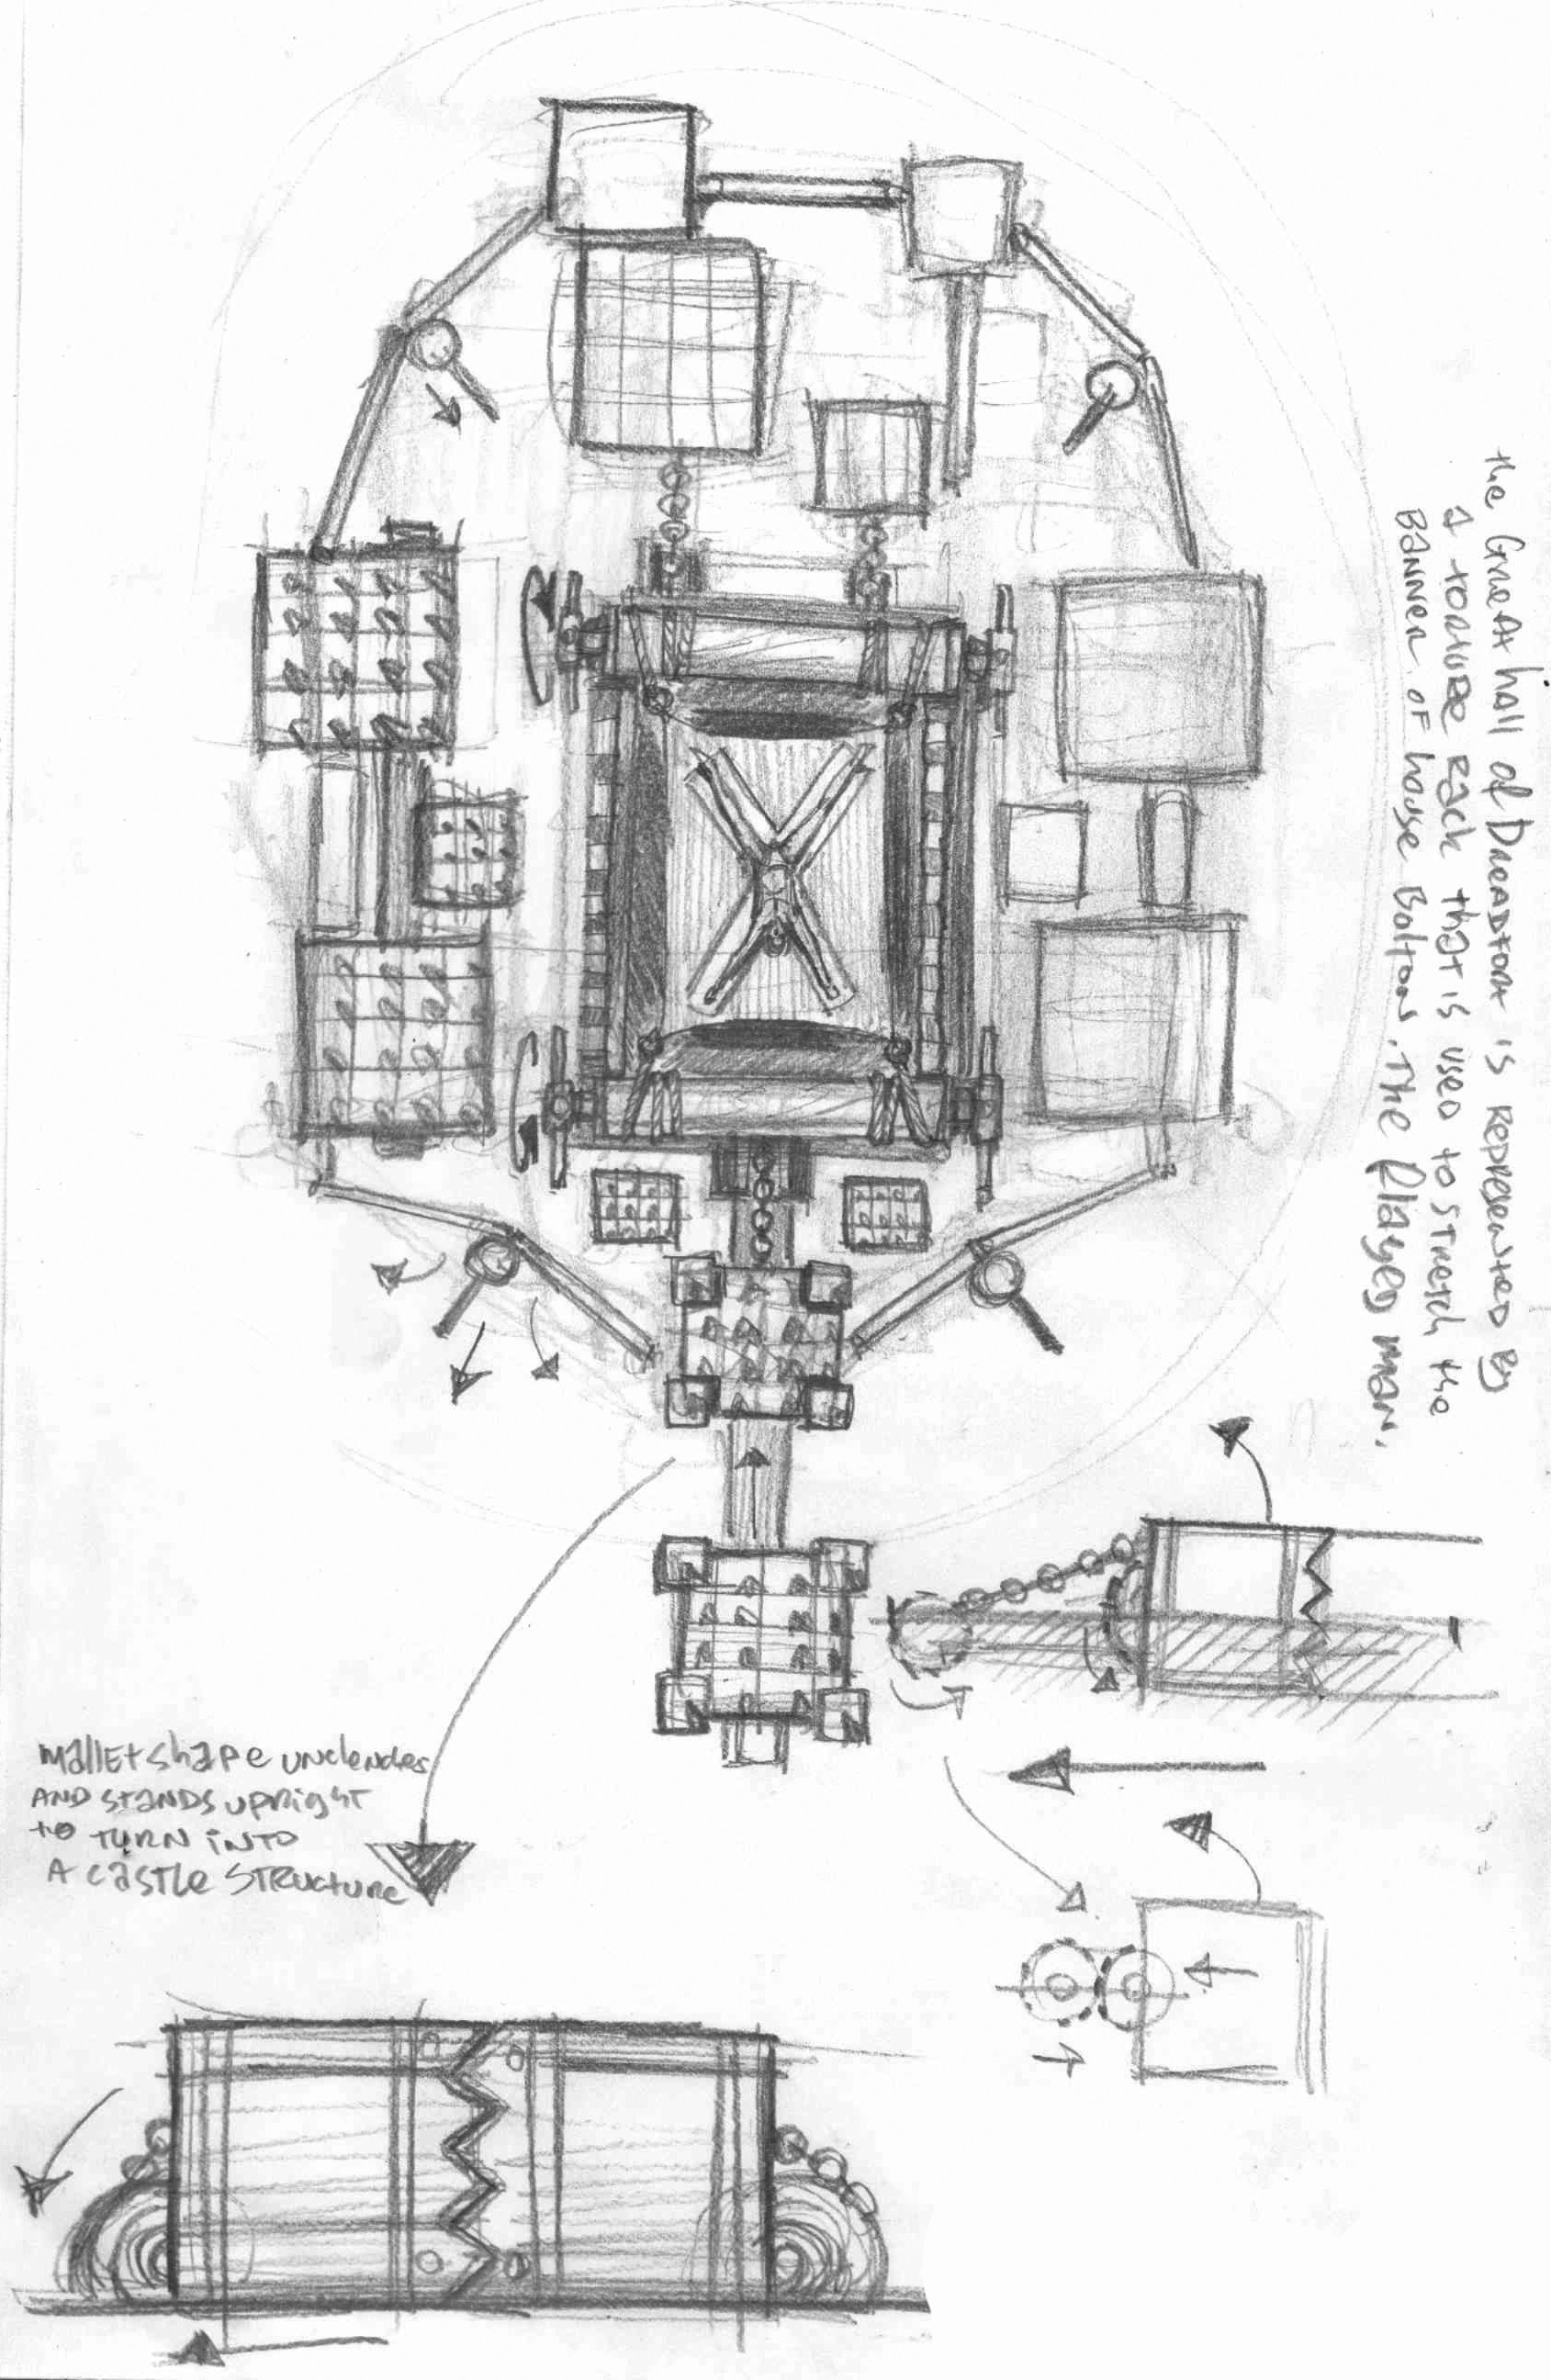 the Great hall of DreadFort is represented By
A torture Rack that is used to stretch the
Banner of house Bolton. The flayed man.
mallet shape
AND stands upright
to TURN INTO
A castle structure